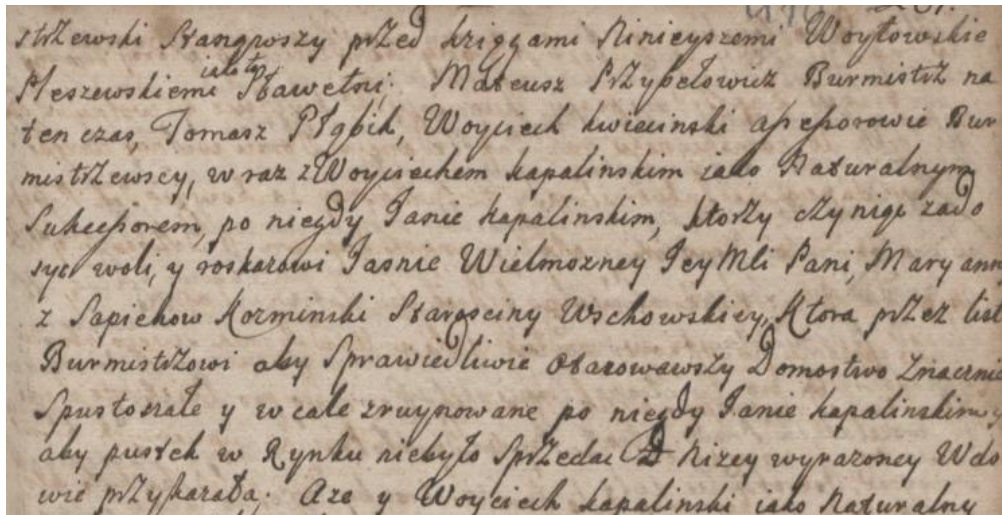 strzewski Stanąwszy przed księgami Ninieyszemi Woytowskie
Pleszewskiemi iako to Sławetni: Mateusz Przybełowicz Burmistrz na
ten czas, Tomasz Ptąbik, Woyciech kwiecinski assessorowie Bur
mistrzewscy, w raz z Woyciechem kapalinskim iako Naturalnym
Sukcessorem, po niegdy Janie kapalinskim, ktorzy czyniąc zado
syc woli, y roskazowi Jasnie Wielmozney JeyMsci Pani, Maryann
z Sapiehow Kozminski Starosciny Wschowskiey, Ktora przez list
Burmistrzowi aby Sprawiedliwie otaxowawszy Domostwo Znacznie
Spustoszałe y w cale zruynowane po niegdy Janie kapalinskim, y
aby pustek w Rynku niebyło Sprzedac Nizey wyrazoney Wdo
wie przykazała: Aze y Woyciech kapalinski iako Naturalny